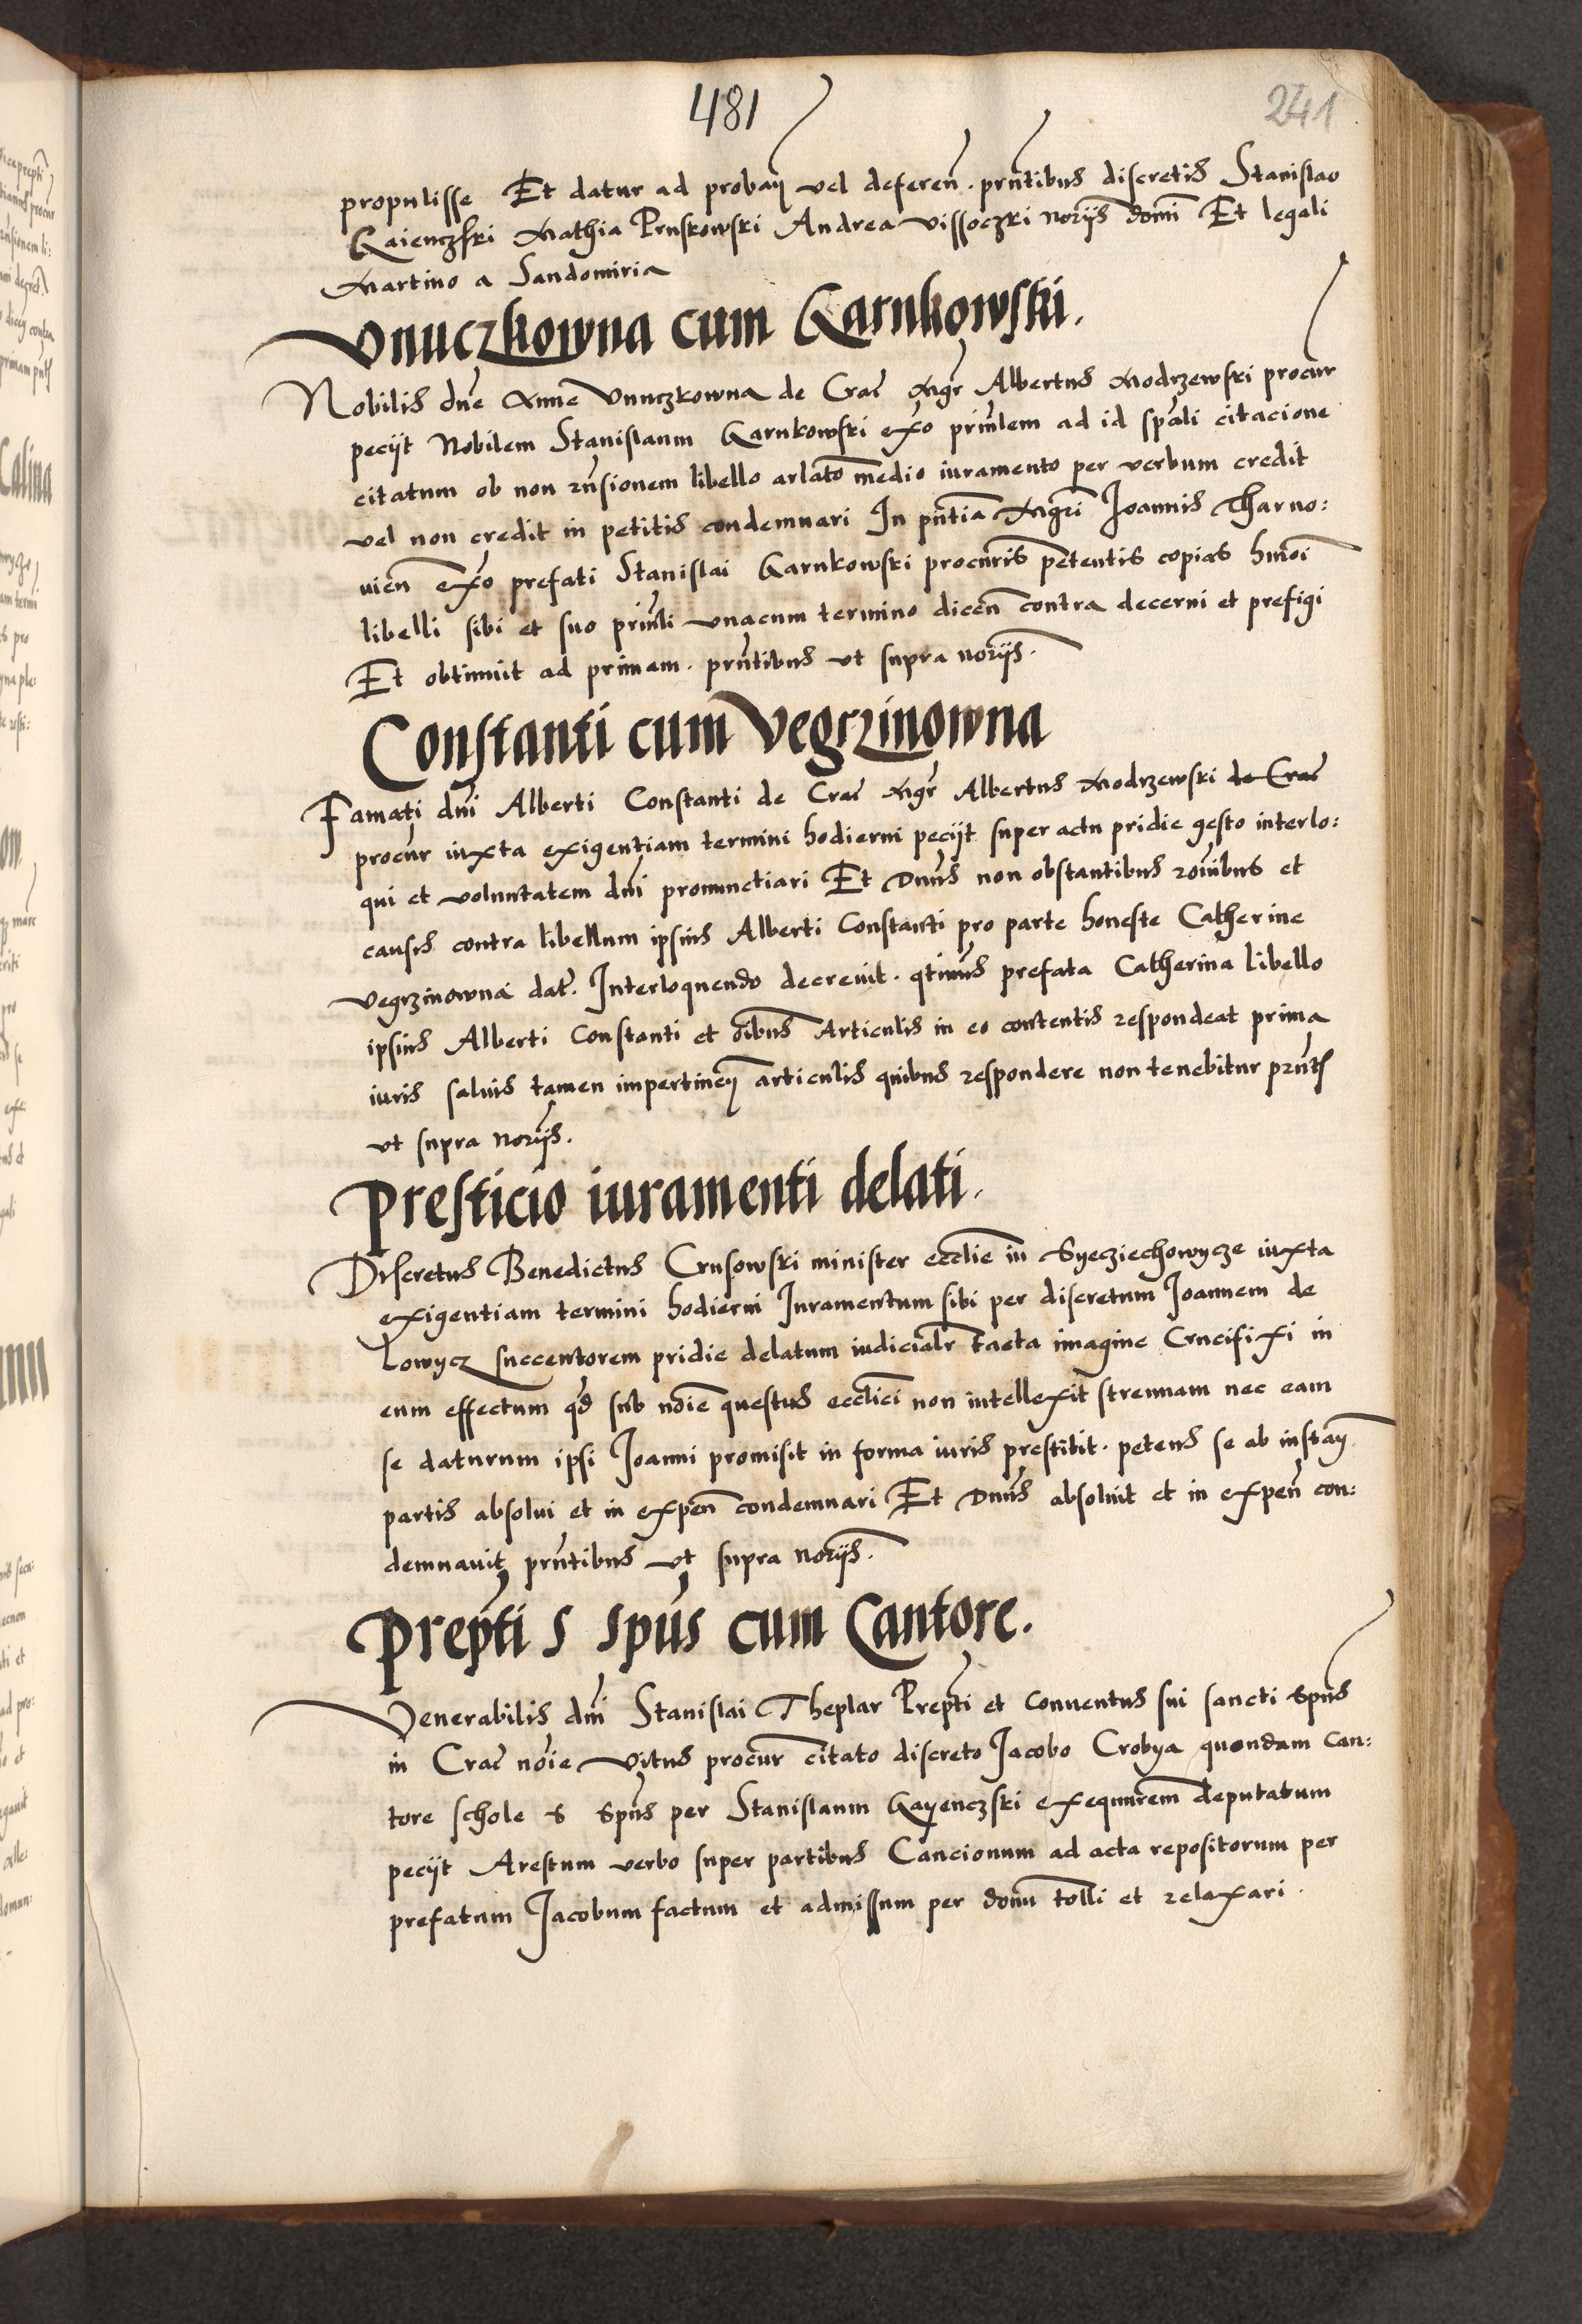 481
241
propulisse Et datur ad proban̄ vel deferen̄. prn̄tibus discretis Stanislao
Kaienczski Mathia Pruskowski Andrea Vissoczki norijs domī Et legali
Martino a Sandomiria
Vnuczkowna cum Karnkowski.
Nobilis dn̄e Anne Vnuczkowna de Crac̄ Mgr̄ Albertus Modrzewski procur̄
pecijt Nobilem Stanislaum Karnkowski ex̄o prin̄lem ad id spāli citacione
citatum ob non rn̄sionem libello arlāto medio iuramento per verbum credit
vel non credit in petitis condemnari In pn̄tia Mgrī Joannis Tharno:
uien̄ ex̄o prefati Stanislai Karnkowski procur̄is petentis copias hmōi
libelli sibi et suo prin̄li vnacum termino dicen̄ contra decerni et prefigi
Et obtinuit ad primam. prn̄tibus vt supra norijs.
Constanti cum Vegrzinowna
Famati dn̄i Alberti Constanti de Crac̄ Mgr̄ Albertus Modrzewski de Crac̄
procur̄ iuxta exigentiam termini hodierni pecijt super actu pridie gesto interlo:
qui et voluntatem dn̄i pronunctiari Et Dnūs non obstantibus rōnibus et
causis contra libellum ipsius Alberti Constanti pro parte honeste Catherine
Vegrzinowna dat̄. Interloquendo decreuit. qtin̄us prefata Catherina libello
ipsius Alberti Constanti et oībus Articulis in eo contentis respondeat prima
iuris saluis tamen impertinen̄ articulis quibus respondere non tenebitur prn̄tibus
vt supra norijs.
Presticio iuramenti delati.
Discretus Benedictus Crusowski minister eccl̄ie in Syeciechowycze iuxta
exigentiam termini hodierni Iuramentum sibi per discretum Joannem de
Lowycz succentorem pridie delatum iudicialr̄ tacta imagine Crucifixi in
eum effectum qd̄ sub nōie questus eccl̄ici non intellexit strennam nec eam
se daturum ipsi Joanni promisit in forma iuris prestitit. petens se ab instan̄
partis absolui et in expen̄ condemnari Et Dnūs absoluit et in expen̄ con:
demnauit prn̄tibus vt supra norijs.
Prepti S Spūs cum Cantore.
Venerabilis dn̄i Stanislai Theplar Prepti et Conuentus sui sancti Spūs
in Crac̄ nōie Vitus procur̄ citato discreto Jacobo Crobya quondam Can:
tore schole S Spūs per Stanislaum Kayenczski exequur̄em deputatum
pecijt Arestum verbo super partibus Cancionum ad acta repositorum per
prefatum Jacobum factum et admissum per don̄u tolli et relaxari.